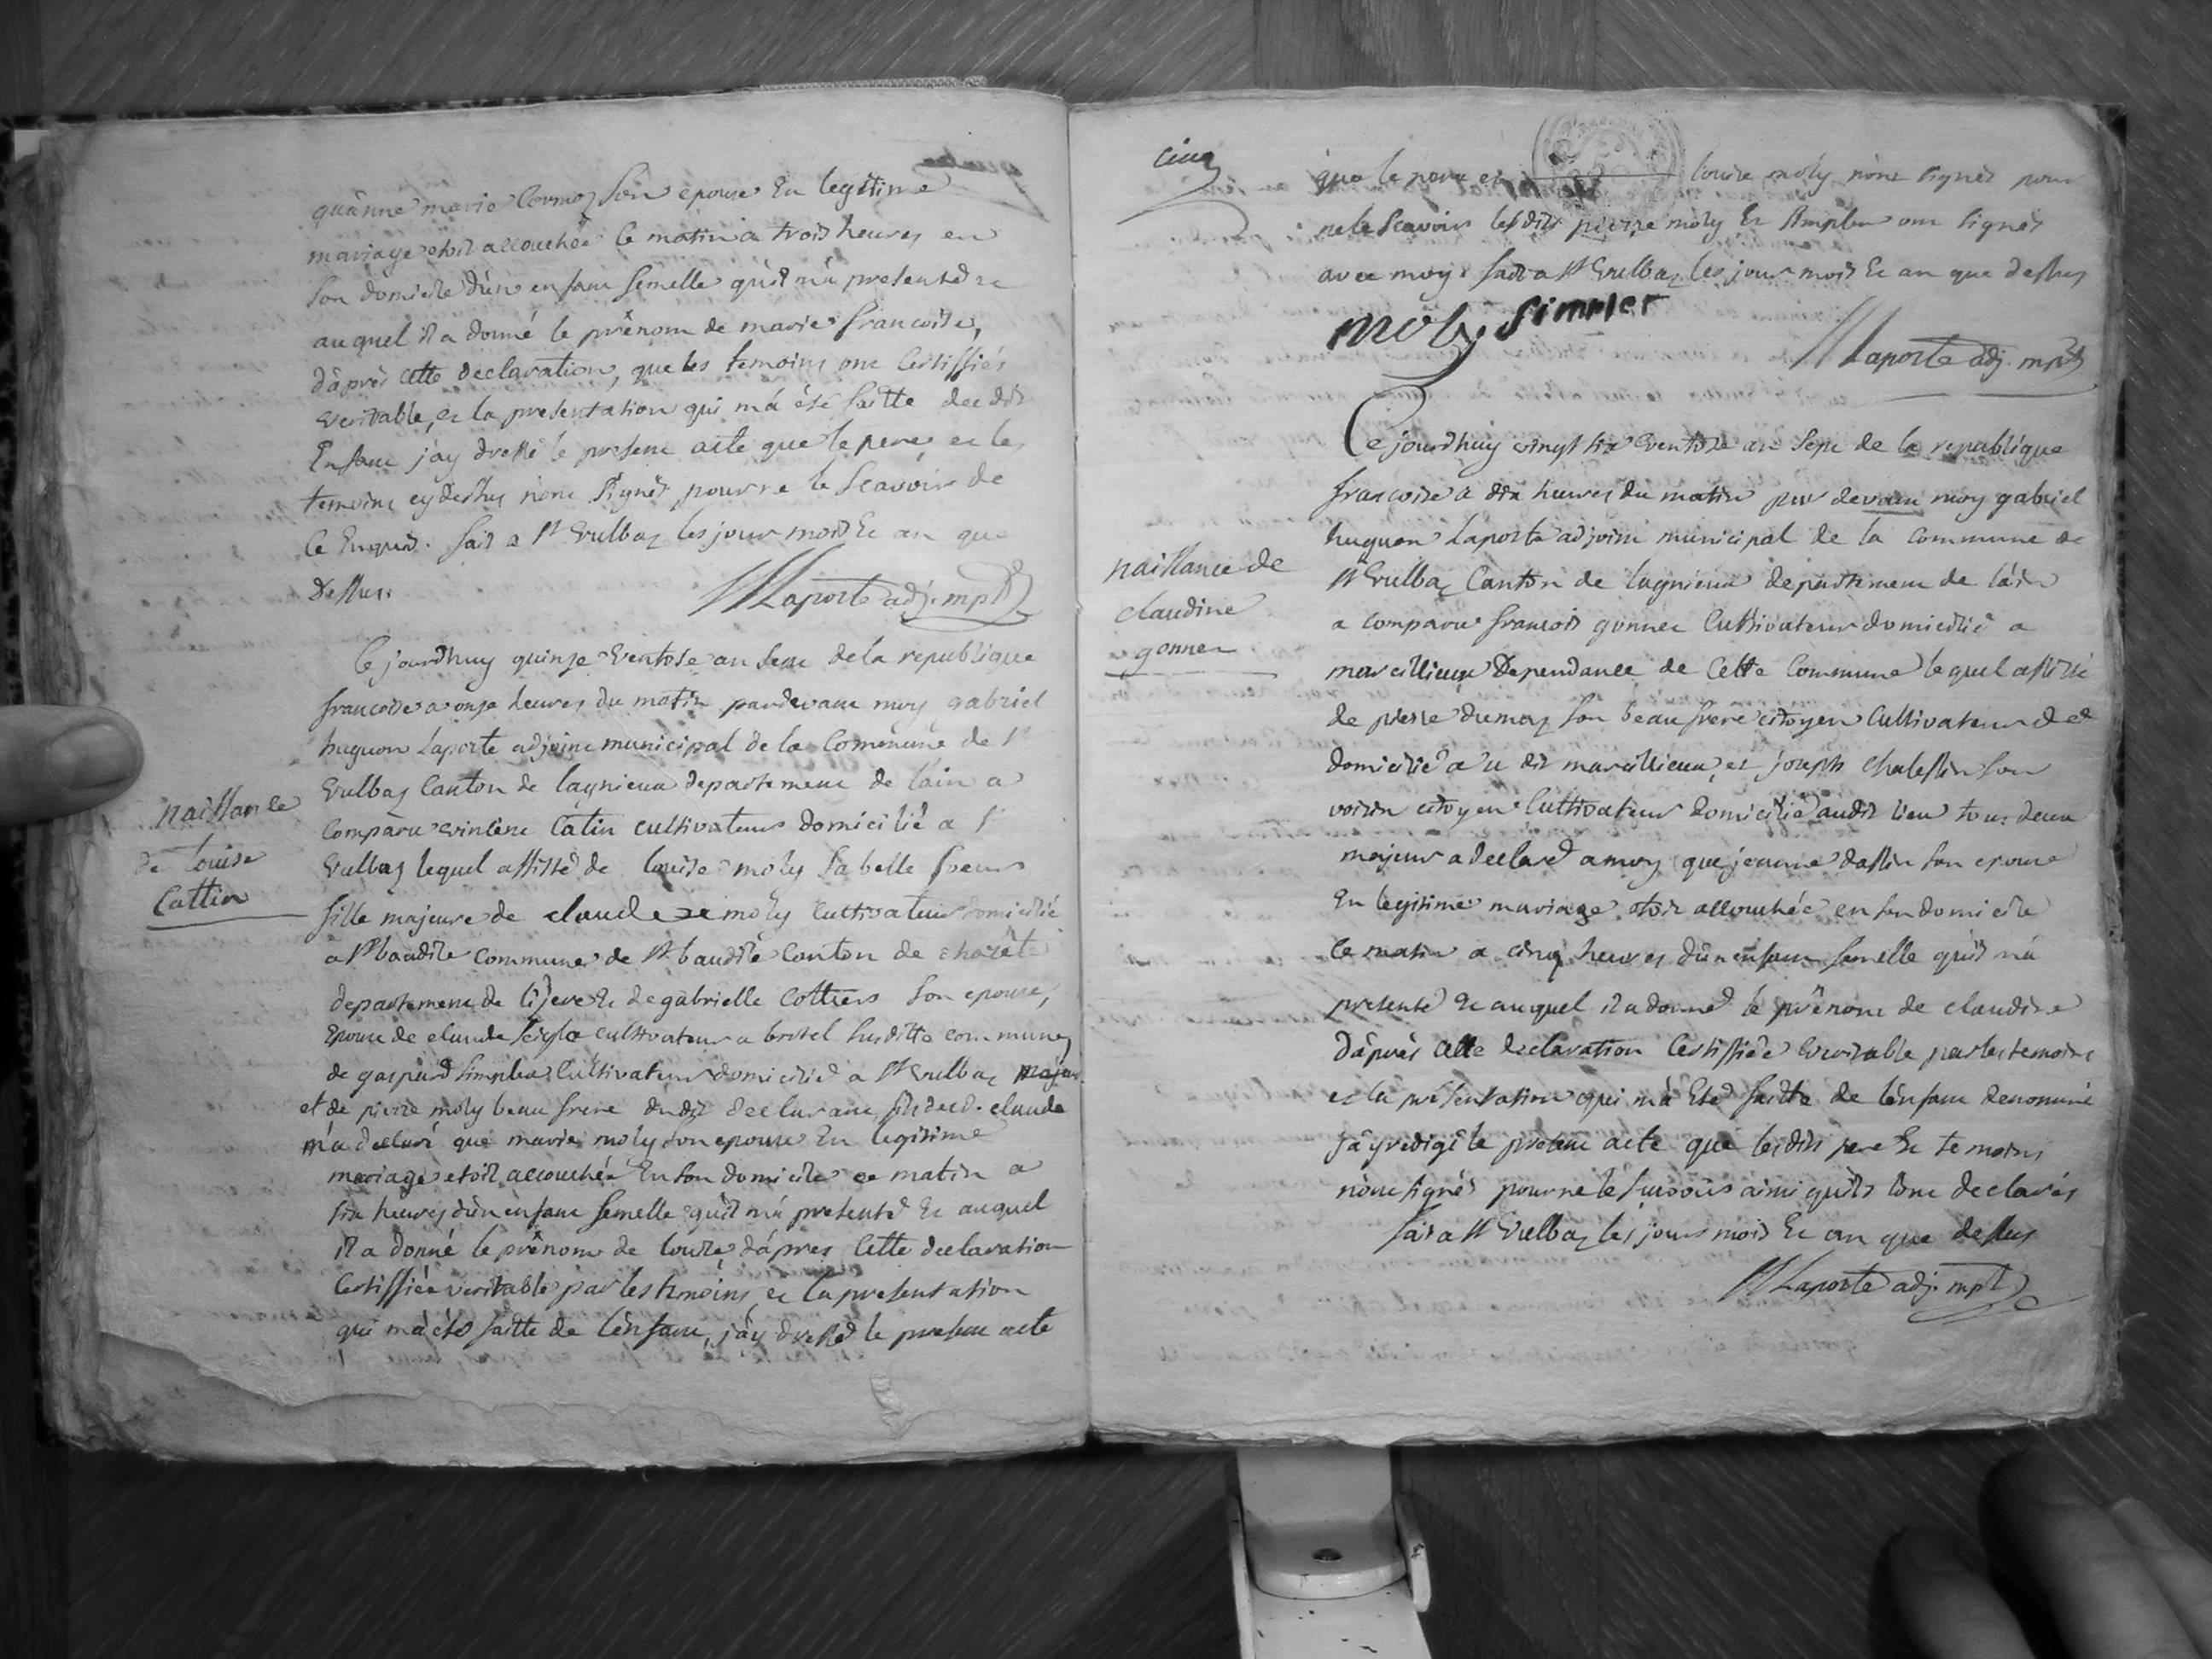 qu'anne marie Cormoz son epouse En legitime
mariage etoit accouchée Ce matin a trois heures en
son domicile d'un enfant femelle qu'il m'a presenté et
auquel il a donné le prénom de marie francoise,
d'après cette declaration, que les temoins ont Certiffiés
veritable, et la presentation qui m'a été faitte du dit
Enfant j'ay dressé le present acte que le pere et les
temoins cy dessus n'ont signés pour ne le scavoir de
Ce Enquis. fait a St Vulbaz les jour mois Et an que
Dessus.
Laporte adj. mpl
naissance
de louise
Cattin
Ce jourdhuy quinze Ventose an sept de la republique
francoise a onze heures du matin pardevant moy gabriel
huguon Laporte adjoint municipal de la Commune de St
Vulbaz Canton de lagnieux departement de l'ain a
Comparu vincent Catin cultivateur domicilié a St
Vulbaz lequel assisté de louise moly sa belle soeur
fille majeure de claude moly Cultivateur domicilié
a St baudile commune de St baudile Canton de
departement de l'isere Et de gabrielle son epouse,
Epouse de claude cultivateur a susditte commune
de gaspard simpler Cultivateur domicilié a St Vulbaz majeur
et de pierre moly beau frere du dit declarant fils dud. claude
m'a declaré que marie moly son epouse En legitime
mariage etoit accouchée En son domicile ce matin a
six heures d'un enfant femelle qu'il m'a presenté Et auquel
il a donné le prénom de louise d'apres Cette declaration
Certiffiée veritable par les temoins et la presentation
qui m'a été faitte de l'enfant, j'ay dressé le present acte
cinq
que le pere et louise moly n'ont signés pour
ne le scavoir lesdits pierre moly Et simpler ont signés
avec moy fait a St Vulbaz les jour mois Et an que dessus
moly simpler
Laporte adj. mpl
naissance de
claudine
gonnet
Ce jourdhuy vingt six Ventose an sept de la republique
francoise a dix heures du matin par devant moy gabriel
huguon Laporte adjoint municipal de la Commune de
St Vulbaz Canton de lagnieux departement de l'ain
a Comparu francois gonnet Cultivateur domicilié a
marcillieux Dependance de Cette Commune lequel assisté
de pierre dumaz son beau frere citoyen Cultivateur
domicilié au dit marcillieux, et joseph son
voisin citoyen Cultivateur domicilié audit lieu tous deux
majeurs a declaré a moy que jeanne son epouse
En legitime mariage etoit accouchée en son domicile
Ce matin a cinq heures d'un enfant femelle qu'il m'a
presenté Et auquel il a donné le prénom de claudine
D'après Cette declaration Certiffiée veritable par les temoins
et la présentation qui m'a Eté faitte de l'enfant denommé
J'ay redigé le present acte que lesdits pere Et temoins
n'ont signés pour ne le scavoir ainsi qu'ils l'ont declarés
fait a St Vulbaz les jour mois Et an que dessus
Laporte adj. mpl